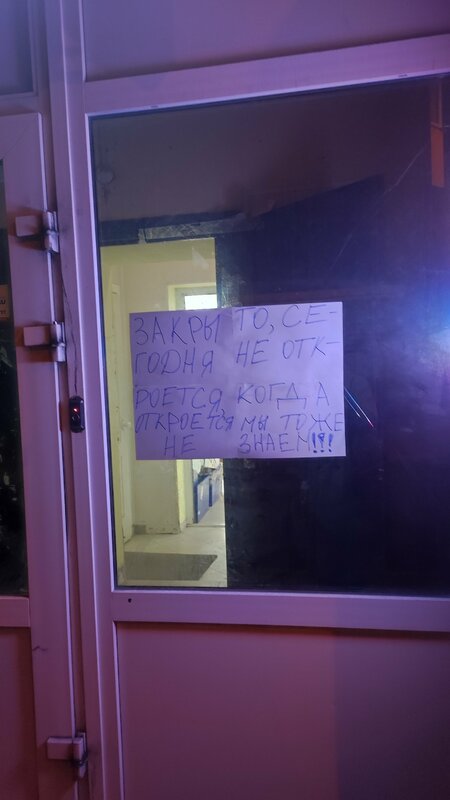 ЗАКРЫТО, СЕ-
ГОДНЯ НЕ ОТК-
РОЕТСЯ, КОГДА
ОТКРОЕТСЯ МЫ ТОЖЕ
НЕ ЗНАЕМ!!!